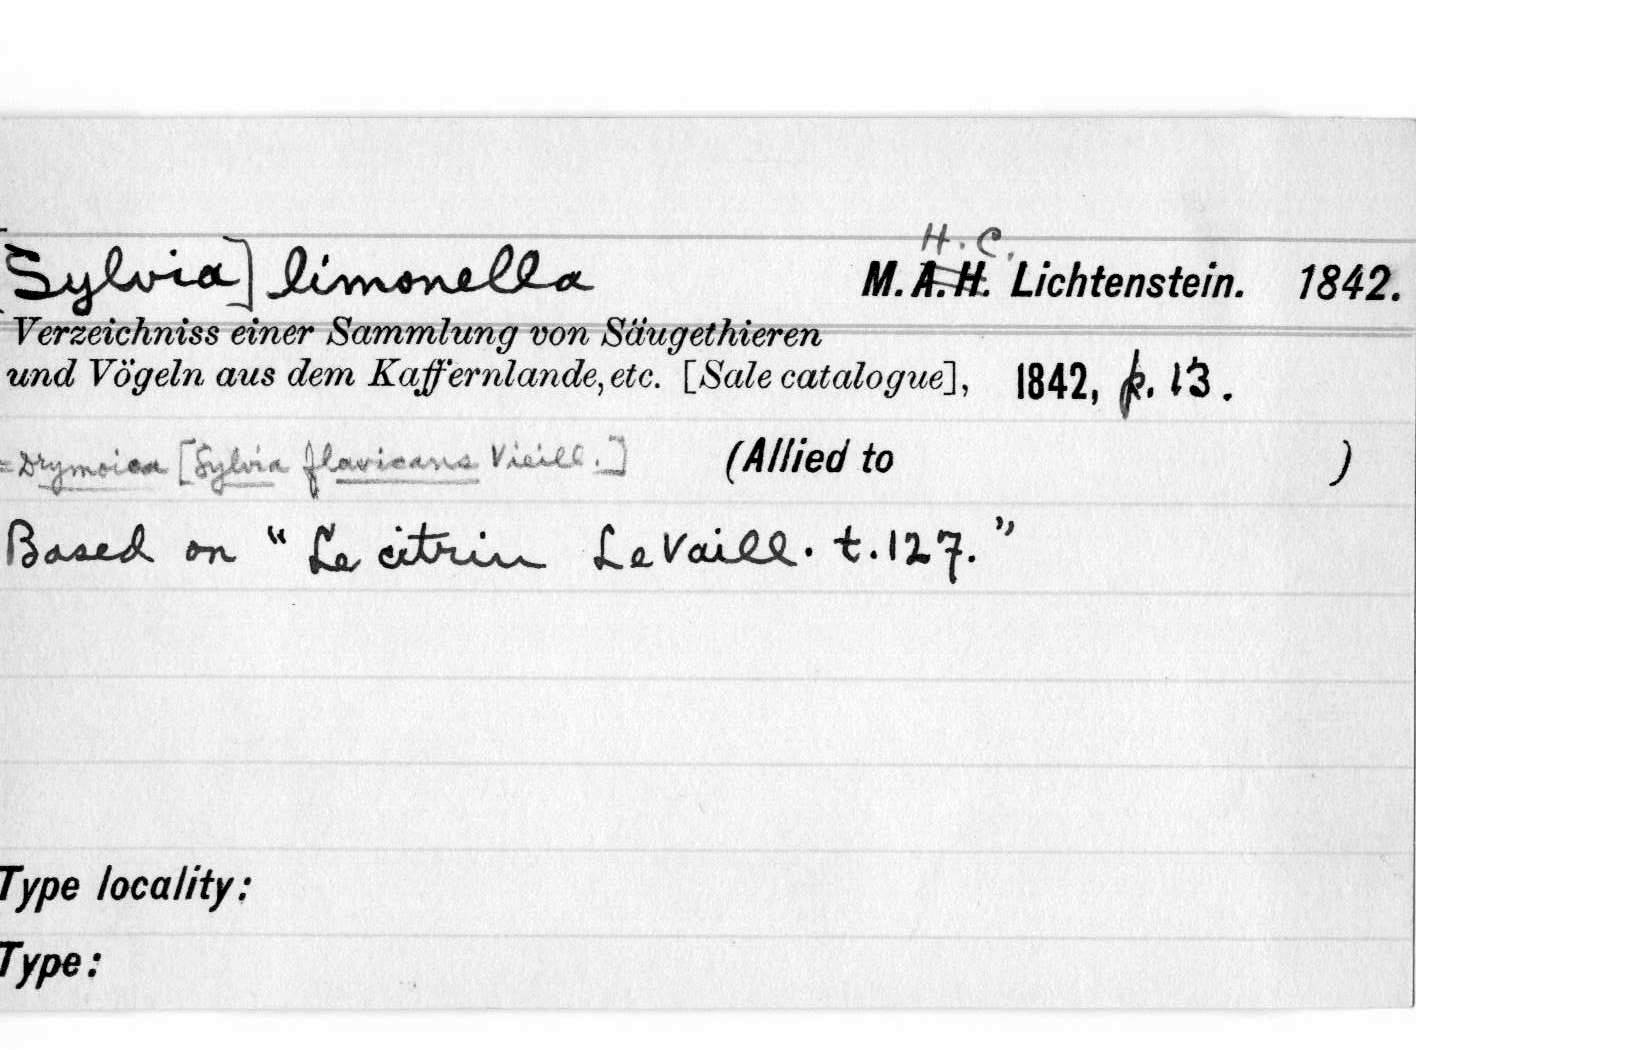 H. C.
[Sylvia] limonella M. A. H. Lichtenstein. 1842.
Verzeichniss einer Sammlung von Säugethieren
und Vögeln aus dem Kaffernlande, etc. [Sale catalogue], 1842, p. 13.
=Drymoica [Sylvia flavicans Vieill.] (Allied to )
Based on "Le citrin Le Vaill. t. 127."
Type locality:
Type: